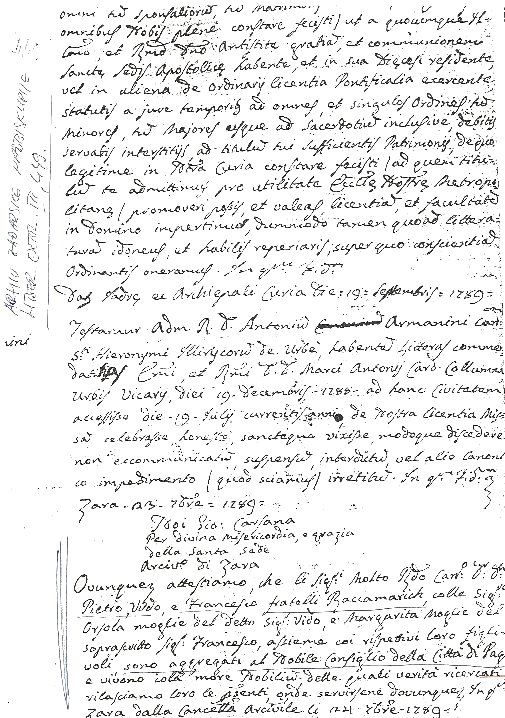 omni tu Sponsaliorũ, tu matrimonij
omnibus Nobis plenè constare fecisti) ut a quocumque Il-
lmo, et Rmo Dno Antistite gratiã, et communionem
Sanctæ Sedis Apostolicæ habente, et in sua Diæcesi residente
vel in aliena de Ordinarij licentia Pontificalia exercente
statutis a jure temporib. ad omnes, et singulos Ordines tũ
Minores, tũ Majores usque ad Sacerdotiũ inclusive debitis
servatis interstitijs ad titulũ tui sufficientis Patrimonij, de quo
legitime in Nostra Curia constare fecisti (ad quem titu-
lũ te admittimus pro utilitate Ecclæ Nostræ Metropo-
litanæ) promoveri possis et valeas licentiã, et facultatẽ
in Domino impertimur, dummodo tamen quoad littera-
turã idoneus, et habilis reperiaris, super quo conscientiã
Ordinantis oneramus. In
Dat Jadræ ex Archiepali Curia Die 19 Septembris 1789
Testamur Adm. R. D. Antoniũ Armanini Can.
S. Hieronymi Illiricorũ de Urbe, habentẽ Litteras commen
datitias Emi, et Rmi D. D. Marci Antonij Card. Collumna
Urbis Vicarij, diei 19 Decembris 1788 ad hanc Civitatem
accessisse die 19 Julij currentis anni de Nostra licentia Mis-
sã celebrasse, honeste, sancteque vixisse, modoque discedere
non excommunicatũ, suspensũ, interdictũ, vel alio Canoni
co impedimento (quod sciamus) irretitũ. In
Zara 23 7bre 1789
Noi Gio: Carsana
Per divina misericordia, e grazia
della Santa Sede
Arcivo di Zara
Ovunquez attestiamo, che li Sigri Molto Rdo Canco D. D.
Pietro, Vido, e Francesco fratelli Raccamarich colle Sigre
Orsola moglie del detto Sigr Vido, e Margarita Moglie del
soprascritto Sigr Francesco, assieme coi rispettivi loro figli-
voli sono aggregati al Nobile Consiglio della Città di Pago
e vivono colle more Nobiliũ, delle quali verità ricercati
rilasciamo loro le presenti onde servirsene dovunque. In
Zara dalla Cancella Arcivile li 24 7bre 1789
ARHIV ZADARSKE NADBISKUPIJE
nini